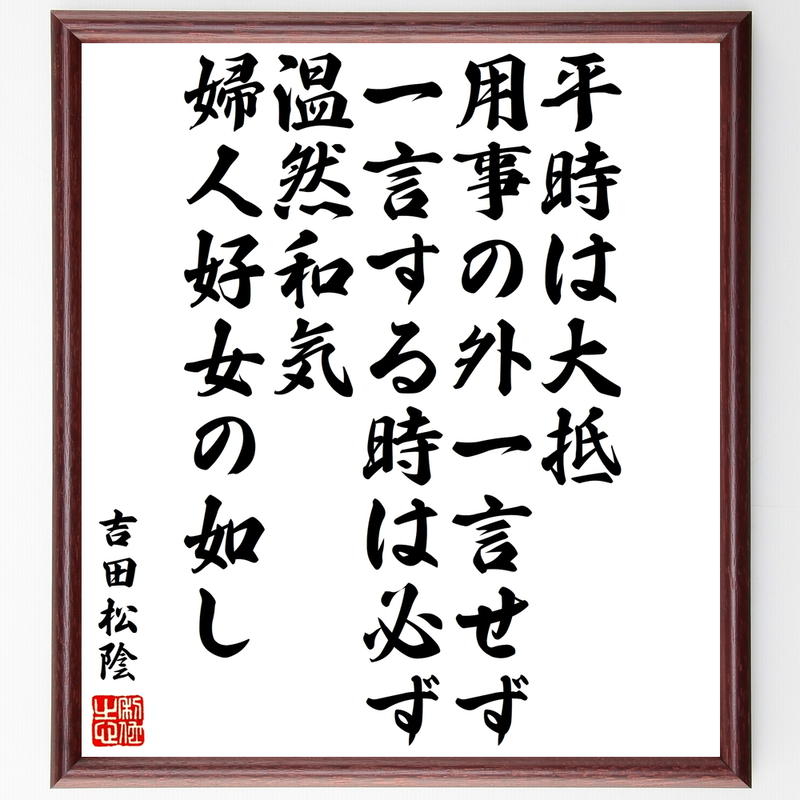 平時は大抵
用事の外一言せず
一言する時は必ず
温然和気
婦人好女の如し
吉田松陰